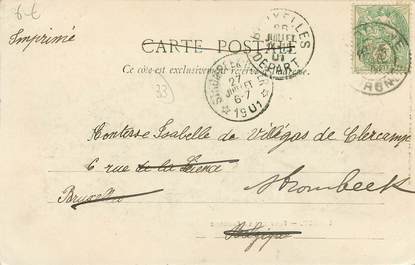 6-€
Imprimé
CARTE POSTALE
Ce côté est exclusivement réservé à l'adresse.
BRUXELLES
JUILLET
01
DÉPART
27
JUILLET
6-7
1901
33
Comtesse Isabelle de Villégas de Clercamp
6 rue de la
Strombeek
Bruxelles
Belgique